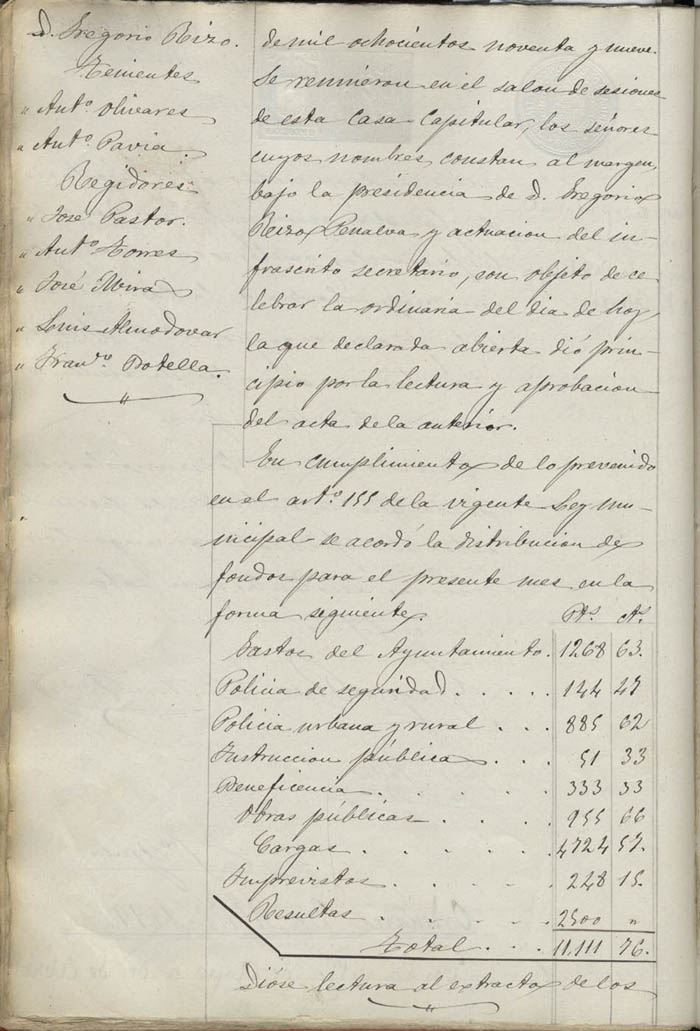 D. Gregorio Rizo.
Tenientes
" Antº. Olivares
" Antº. Pavia.
Regidores
" José Pastor.
" Antº Torres
" José Mira
" Luis Almodovar
" Franᶜº. Botella.
de mil ochocientos noventa y nueve.
Se reunieron en el salon de sesiones
de esta Casa-Capitular, los señores
cuyos nombres constan al margen,
bajo la presidencia de D. Gregorio
Rizo Penalva y actuacion del in-
frascrito secretario, con objeto de ce
lebrar la ordinaria del dia de hoy,
la que declarada abierta dió prin-
cipio por la lectura y aprobacion
del acta de la anterior.
En cumplimiento de lo prevenido
en el artº. 155 de la vigente Ley mu-
nicipal se acordó la distribucion de
fondos para el presente mes en la
forma siguiente. Ptˢ. Ctˢ.
Gastos del Ayuntamiento. 1268 63.
Policia de seguridad. . . . . 144 47
Policia urbana y rural . . . 885 62
Instruccion pública . . . 51 33
Beneficencia . . . . . . 333 33
Obras públicas . . . . 955 66
Cargas . . . . . . 4724 57.
Imprevistos . . . . . 248 15.
Resultas . . . . . . 2500 "
Total . . . 11,111 76.
Dióse lectura al extracto de los